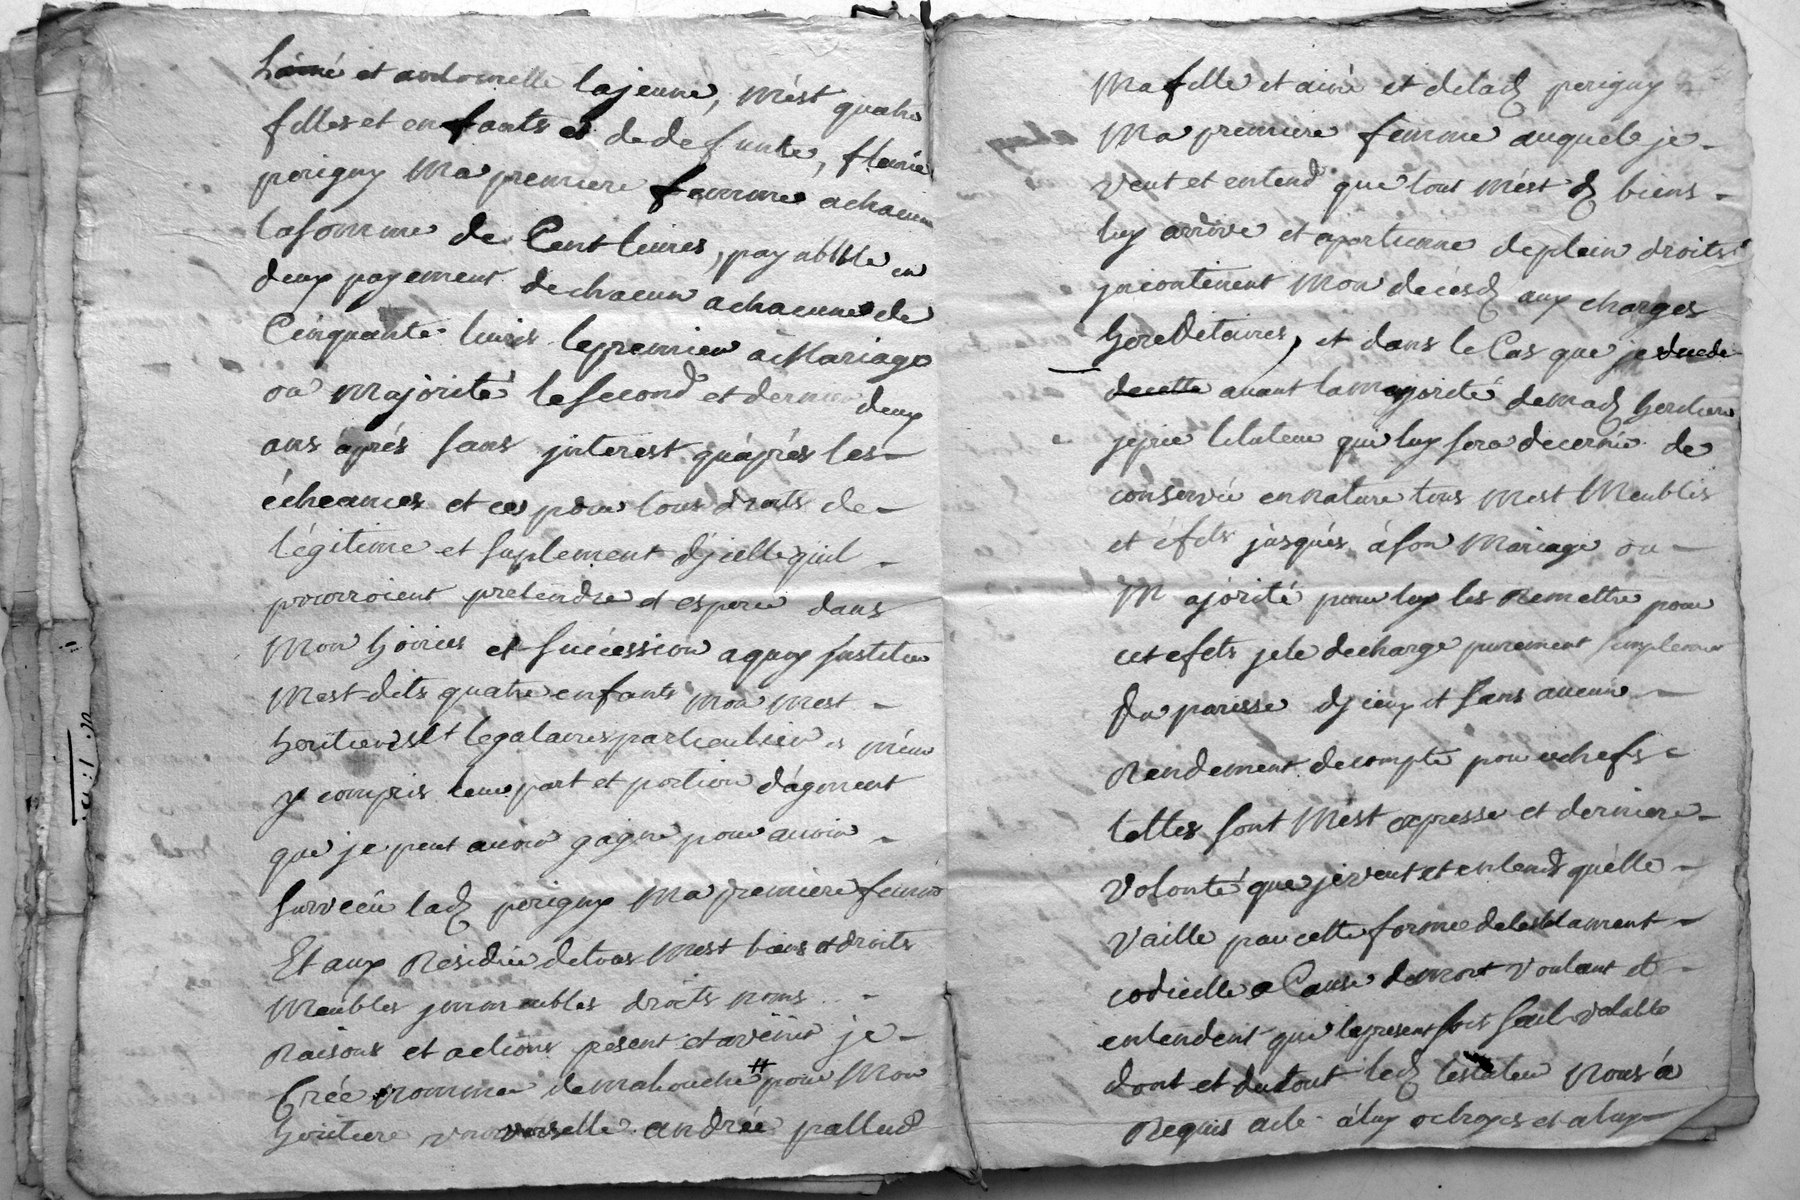 L'ainné et andomelle la jeune, mést quatre
filles et enfants et de defunte, fleurie
perigny Ma premiere femme a chacune
la somme de Cent livres, payabble en
deux payement de chacun a chacune de
Cinquante livres le premier à Mariage
ou Majorité le second et dernier deux
ans aprés sans jnterest qu'aprés les
écheances et ce pour tous droits de
légitime et suplement d'jcelle quil
pourroient pretendre et esperé dans
Mon hoiries et succéssion a quoy jnstitue
Mest dits quatre enfants Mon Mest
heritiers et legataires particuliers méme
y compris leur part et portion d'agment
que je peut avoir gagné pour avoir
survecû lad perigny Ma premiere femme
Et aux Residue de tous Mest biens et droits
Meubles jmmeubles droits noms
Raisons et actions présent et avênir je
Créé nommé de ma bouche # pour Mon
heritiere universelle andrée pallud
Ma fille et ainé et de lad perigny
Ma premiere femme auquel je
veut et entend que tout mést d biens
luy arrive et apartienne de plein droits
jncontinent Mon decésd aux charges
hereditaires, et dans le Cas que je decede
avant la majorité de mad heritiere
je prie le tuteur qui luy sera decerné de
conservé en nature tous mest Meubles
et éfets jusqués à son Mariage ou
Majorité pour luy les Remettre pour
cet efets je le decharge purement simplement
du parisse d'jceux et sans aucun
Rendement de compte pour ce chefs
telles sont Mést expresse et derniere
Volonté que je veut et entend qu'elle
Vaille par cette forme de testament
codicille a Cause de mort voulant et
entendent que le present soit seul valable
dont et du tout led testateur Nous à
Requis acte à luy octroyés et a luy